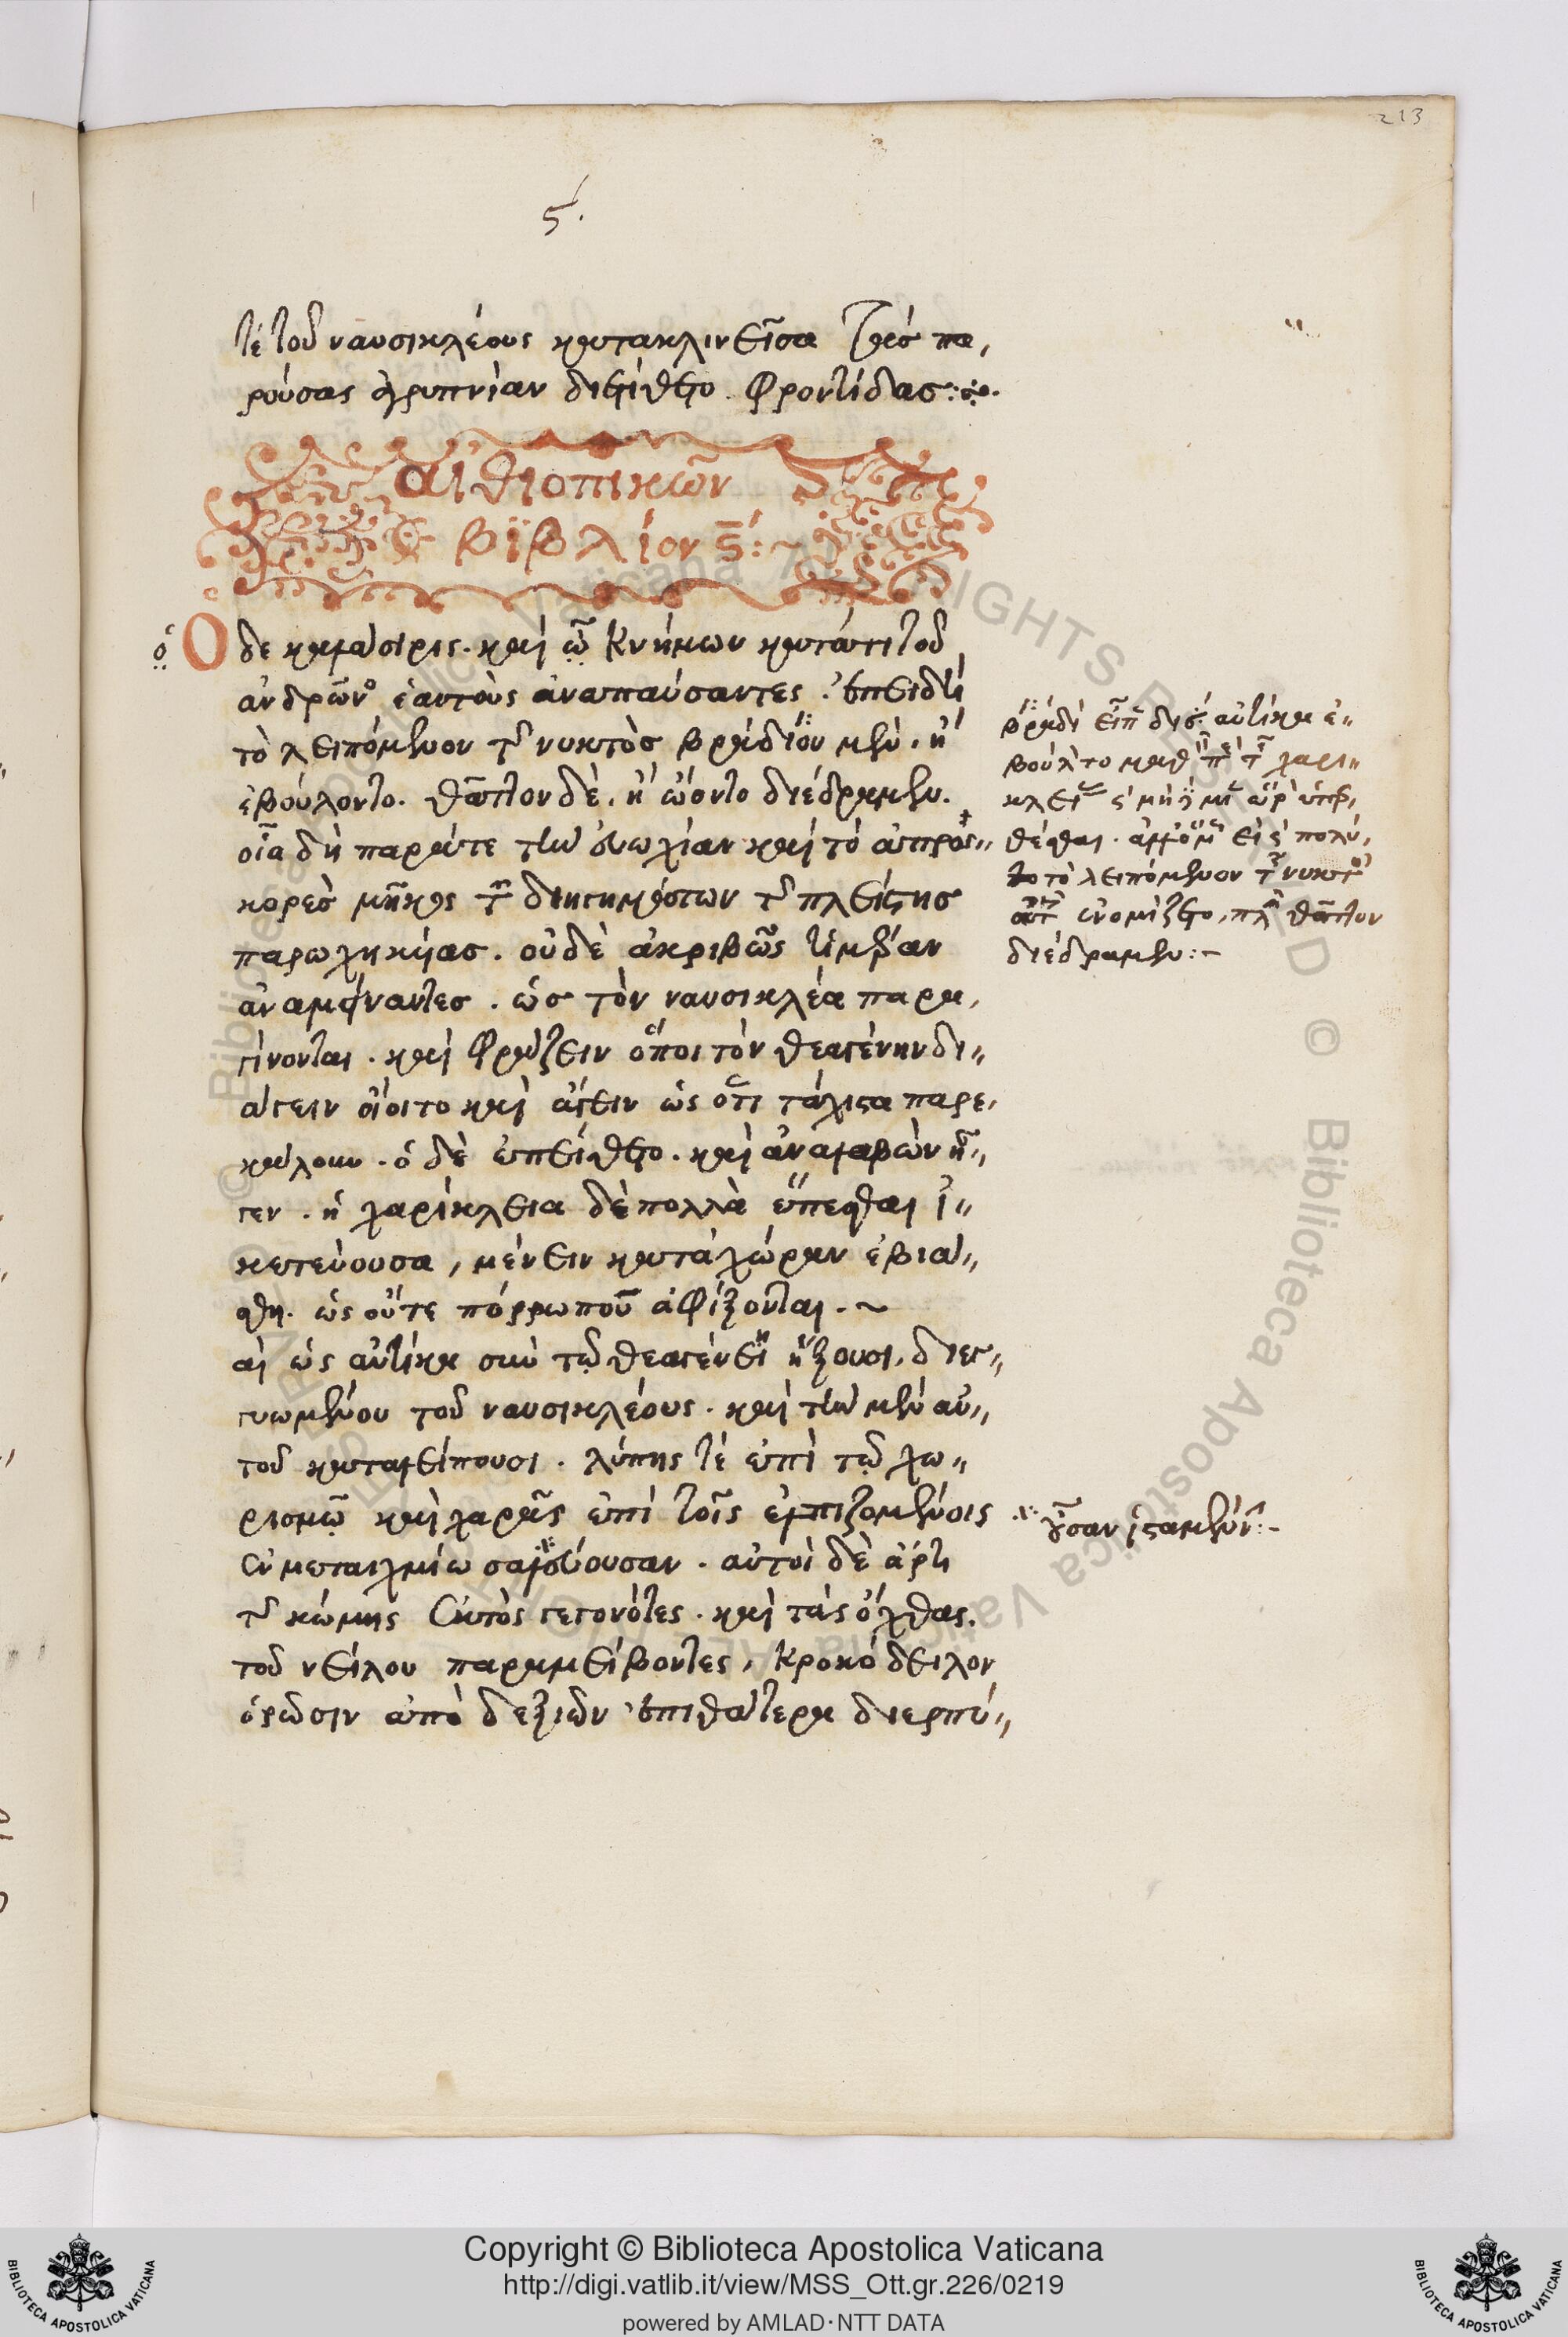 213
ϛ´.
τὲ τοῦ ναυσικλέους κατακλινεῖσα τὰς πα,
ρούσας ἀγρυπνίαν διετίθετο. φροντίδας:
αἰθιοπικῶν
βϊβλίον ϛ´:~
ὁ Ὁ δὲ καλάσιρις. καὶ ὧ κνήμων κατά τι τοῦ
ἀνδρῶν ἑαυτοὺς ἀναπαύσαντες. ἐπειδὴ
τὸ λειπόμενον τῆς νυκτὸς βράδιον μὲν, ἢ
ἐβούλοντο. θᾶττον δὲ, ἢ ὤοντο διέδραμεν.
οἷα δὴ παρά τε τὴν εὐωχίαν καὶ τὸ ἀπρόσ,,
κορες μῆκος τῶν διηγημάτων τῆς πλείστης
παρωχηκυίας. οὐδὲ ἀκριβῶς ἡμέραν
ἀναμείναντες. ὡς τὸν ναυσικλέα παρα,
γίνονται. καὶ φράζειν ὅποι τὸν θεαγένην δι,,
άγειν οἴοιτο καὶ ἄγειν ὡς ὅτι τάχιστα παρε,
κάλουν. ὁ δὲ ἐπείθετο. καὶ ἀναλαβὼν ἦ,,
γεν. ἡ χαρίκλεια δὲ πολλὰ ἕπεσθαι ἱ,,
κετεύουσα, μένειν κατὰ χώραν ἐβιά,,
σθη. ὡς οὔτε πόρρω ποῦ ἀφίξονται. ~
αἱ ὡς αὐτίκα σὺν τῷ θεαγένει ἥξουσι, διεγ,,
γυωμένου τοῦ ναυσικλέους. καὶ τὴν μὲν αὐ,,
τοῦ καταλείπουσι. λύπης τὲ ἐπὶ τῷ χω,,
ρισμῷ καὶ χαρᾶς ἐπὶ τοῖς ἐλπιζομένοις
ἐν μεταιχμίω σαλεύουσαν. αὐτοὶ δὲ ἄρτι
τῆς κώμης ἐκτὸς γεγονότες. καὶ τὰς ὄχθας
τοῦ νείλου παραμείβοντες, κροκόδειλον
ὁρῶσιν ἀπὸ δεξιῶν ἐπὶ θάτερα διερπύ,,
βράδι εἶπε αὐτίκα ἐ,,
βούλετο χαρι,,
κλεί
θέσθαι. εἰς πολύ,
το λειπόμενον τῆς νυκτὸς
ἐνομίζετο, πλὴν θᾶττον
διέδραμεν:-
οῦσαν ἱσταμένην:-
Copyright © Biblioteca Apostolica Vaticana
http://digi.vatlib.it/view/MSS_Ott.gr.226/0219
powered by AMLAD·NTT DATA